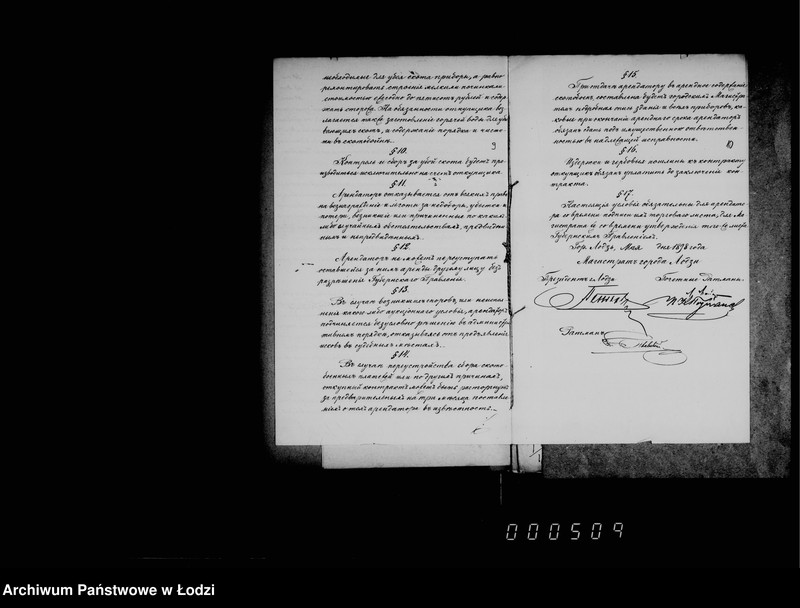 необходимые для убоя скота приборы, а равно
ремонтировать строения мелкими починками
стоимостью ежегодно до пятисот рублей и
сторожа. На обязанности откупщика
лагается также заготовление горячей воды для
скот, и содержание порядка и
ты въ скотобойне.
9
§ 10.
Контроль и сборъ за убой скота будетъ про-
изводиться исключительно на счетъ откупщика
§ 11.
Арендаторъ отказывается отъ всякихъ
на вознагражденіе и льготы за недоборы, убытки и
потери, возникшія или причиненныя по какимъ
либо случайнымъ обстоятельствамъ, предвидѣн-
нымъ и непредвидѣннымъ.
§ 12.
Арендаторъ не можетъ переуступать
оставшейся за нимъ аренды другому лицу безъ
разрѣшенія Губернскаго Правленія.
§ 13.
Въ случаѣ возникшихъ споровъ, или неиспол-
ненія какого либо аукціоннаго условія, арендаторъ
подчиняется безусловно рѣшенію въ админист-
ративномъ порядкѣ, отказываясь отъ предъявленія
исковъ въ судебныхъ мѣстахъ.
§ 14.
Въ случаѣ переустройства сбора ското-
боенныхъ или по другимъ причинамъ,
откупной контрактъ можетъ быть расторгнутъ
за предварительнымъ на три мѣсяца поставле-
ніемъ о томъ арендатора въ извѣстность.
§ 15.
При отдачѣ арендатору въ арендное содержаніе
скотобоенъ, составлена будетъ городскимъ Магистра-
томъ подробная опись зданій и всѣхъ приборовъ, ка-
ковые при окончаніи аренднаго срока арендаторъ
обязанъ сдать подъ имущественною отвѣтствен-
ностью въ надлежащей исправности.
10
§ 16.
Издержки и гербовыя пошлины къ контракту
откупщикъ обязанъ уплатить до заключенія кон-
тракта.
§ 17.
Настоящія условія обязательны для арендато-
ра со времени подписи имъ торговаго листа, для Ма-
гистрата же со времени утвержденія того же листа
Губернскимъ Правленіемъ.
Гор. Лодзь, Мая дня 1898 года.
Магистратъ города Лодзи
Президентъ г. Лодзи
Почетные Ратманы:
Ратманъ
000509
Archiwum Państwowe w Łodzi